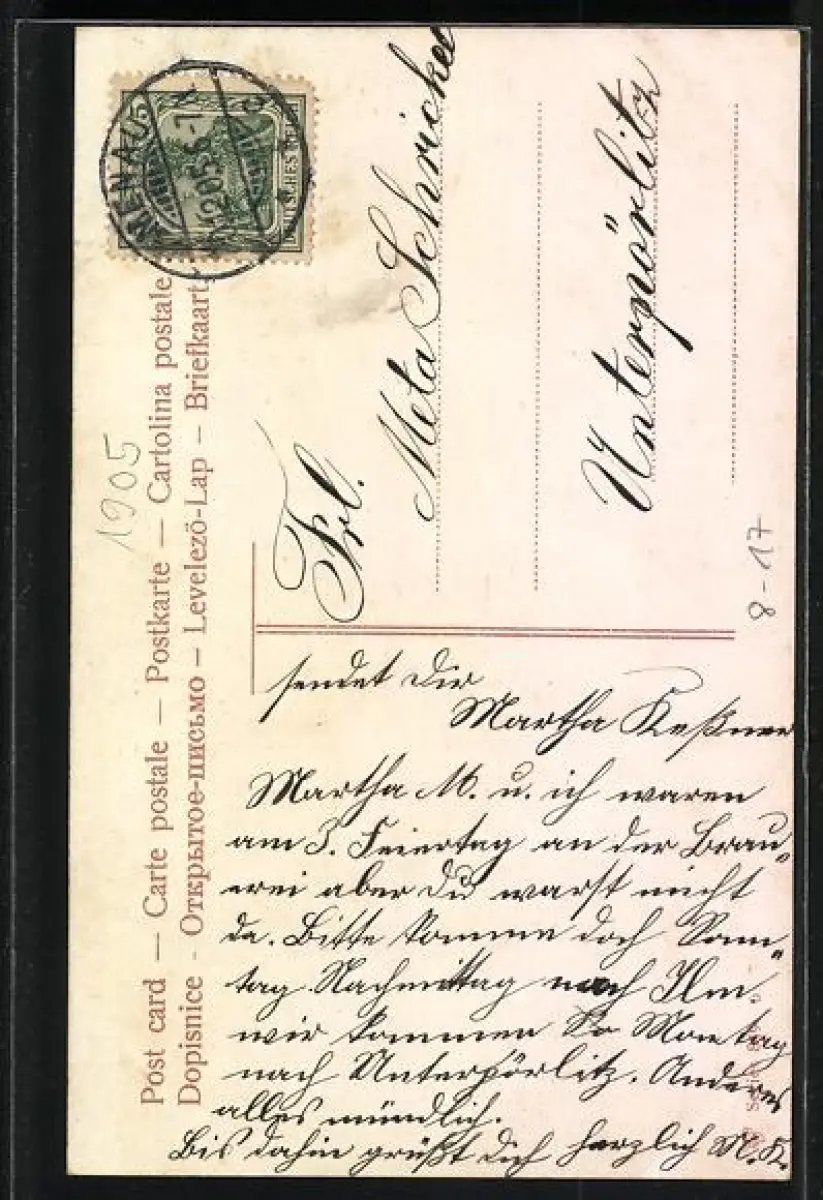 Post card — Carte postale — Postkarte — Cartolina postale
Dopisnice - Открытое-письмо — Levelezö-Lap — Briefkaart
1905
MENAU
12 05 6-7 N
C
5
DEUTSCHES REICH
Frl.
Meta Schrickel
Unterpörlitz
8-17
sendet Dir
Martha Keßner
Martha M. u. ich waren
am 3. Feiertag an der Brau„
erei aber Du warst nicht
da. Bitte komme doch Sonn„
tag Nachmittag nach Ilm.
wir kommen So Montag
nach Unterpörlitz. Anderes
alles mündlich.
Bis dahin grüßt Dich herzlich M. K.